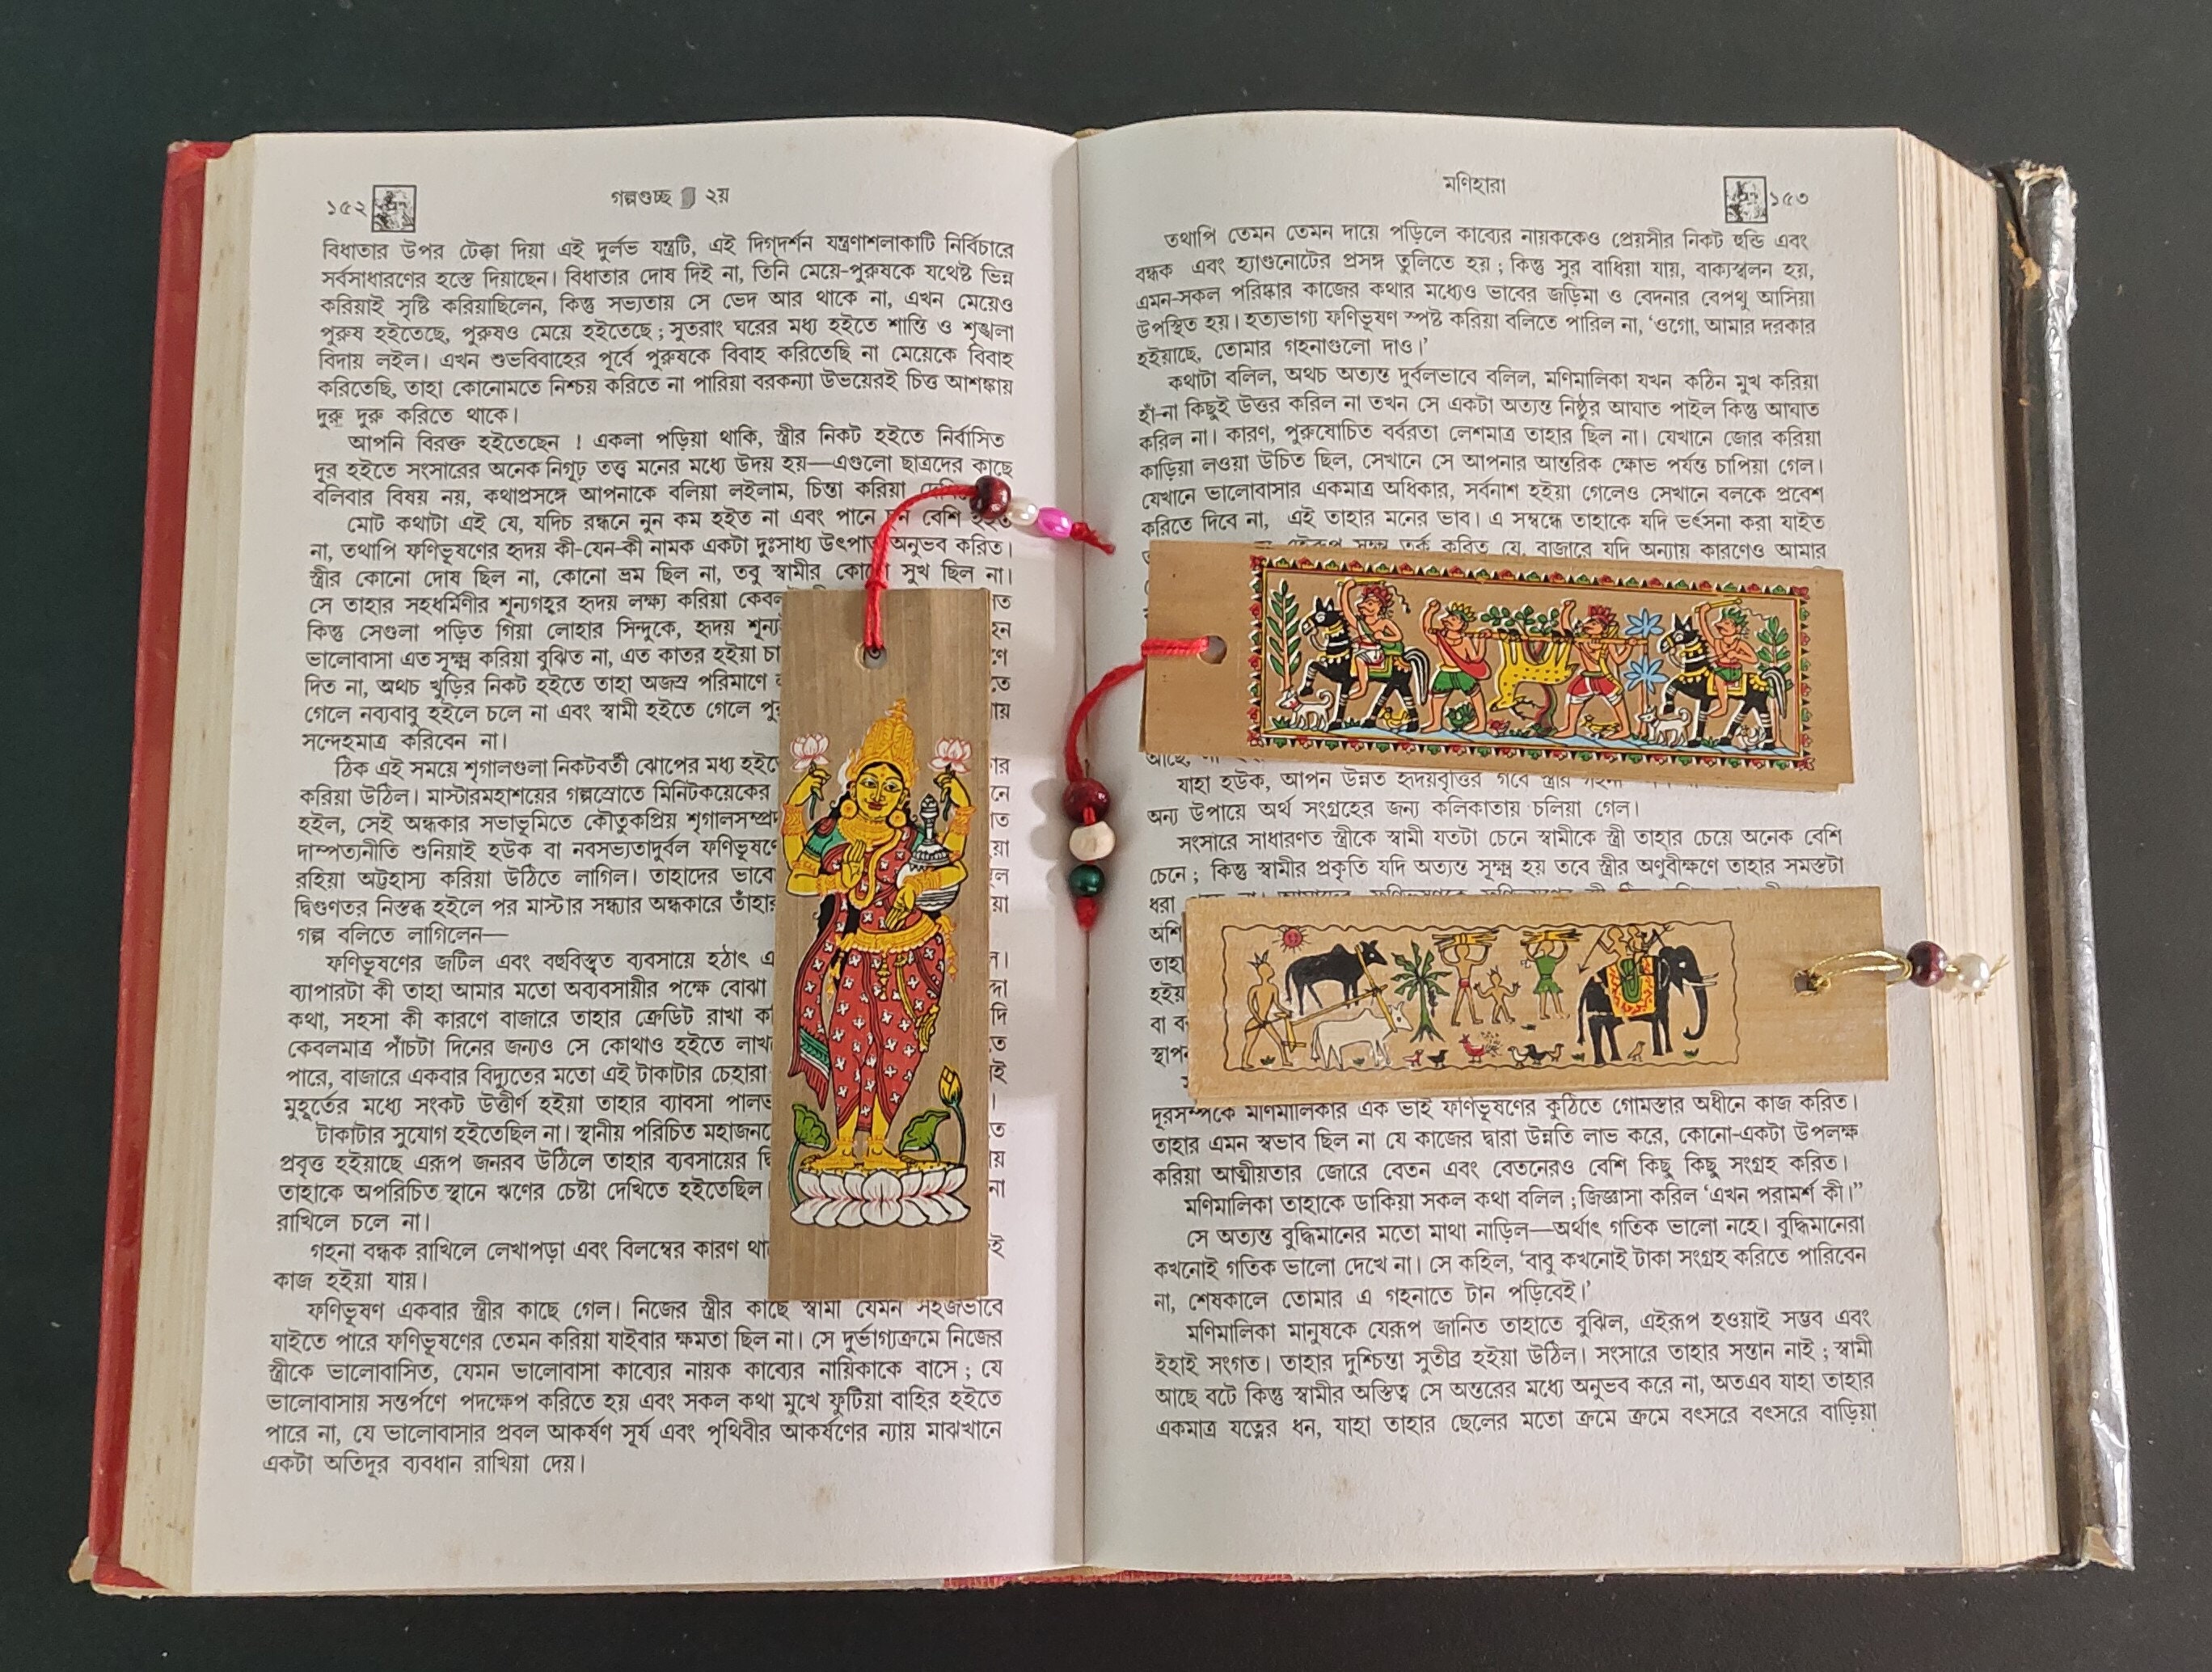 ১৫২
গল্পগুচ্ছ ২য়
বিধাতার উপর টেক্কা দিয়া এই দুর্লভ যন্ত্রটি, এই দিগ্‌দর্শন যন্ত্রণাশলাকাটি নির্বিচারে
সর্বসাধারণের হস্তে দিয়াছেন। বিধাতার দোষ দিই না, তিনি মেয়ে-পুরুষকে যথেষ্ট ভিন্ন
করিয়াই সৃষ্টি করিয়াছিলেন, কিন্তু সভ্যতায় সে ভেদ আর থাকে না, এখন মেয়েও
পুরুষ হইতেছে, পুরুষও মেয়ে হইতেছে; সুতরাং ঘরের মধ্য হইতে শান্তি ও শৃঙ্খলা
বিদায় লইল। এখন শুভবিবাহের পূর্বে পুরুষকে বিবাহ করিতেছি না মেয়েকে বিবাহ
করিতেছি, তাহা কোনোমতে নিশ্চয় করিতে না পারিয়া বরকন্যা উভয়েরই চিত্ত আশঙ্কায়
দুরু দুরু করিতে থাকে।
আপনি বিরক্ত হইতেছেন ! একলা পড়িয়া থাকি, স্ত্রীর নিকট হইতে নির্বাসিত
দূর হইতে সংসারের অনেক নিগূঢ় তত্ত্ব মনের মধ্যে উদয় হয়—এগুলো ছাত্রদের কাছে
বলিবার বিষয় নয়, কথাপ্রসঙ্গে আপনাকে বলিয়া লইলাম, চিন্তা করিয়া
মোট কথাটা এই যে, যদিচ রন্ধনে নুন কম হইত না এবং পানে চুন বেশি হইত
না, তথাপি ফণিভূষণের হৃদয় কী-যেন-কী নামক একটা দুঃসাধ্য উৎপাত অনুভব করিত।
স্ত্রীর কোনো দোষ ছিল না, কোনো ভ্রম ছিল না, তবু স্বামীর কোনো সুখ ছিল না।
সে তাহার সহধর্মিণীর শূন্যগহ্বর হৃদয় লক্ষ্য করিয়া
কিন্তু সেগুলা পড়িত গিয়া লোহার সিন্দুকে, হৃদয়
ভালোবাসা এত সূক্ষ্ম করিয়া বুঝিত না, এত কাতর হইয়া
দিত না, অথচ খুড়ির নিকট হইতে তাহা অজস্র পরিমাণে
গেলে নব্যবাবু হইলে চলে না এবং স্বামী হইতে গেলে
সন্দেহমাত্র করিবেন না।
ঠিক এই সময়ে শৃগালগুলা নিকটবর্তী ঝোপের মধ্য
করিয়া উঠিল। মাস্টারমহাশয়ের গল্পস্রোতে মিনিটকয়েকের
হইল, সেই অন্ধকার সভাভূমিতে কৌতুকপ্রিয়
দাম্পত্যনীতি শুনিয়াই হউক বা নবসভ্যতাদুর্বল
রহিয়া অট্টহাস্য করিয়া উঠিতে লাগিল। তাহাদের
দ্বিগুণতর নিস্তব্ধ হইলে পর মাস্টার সন্ধ্যার অন্ধকারে
গল্প বলিতে লাগিলেন—
ফণিভূষণের জটিল এবং বহুবিস্তৃত ব্যবসায়ে হঠাৎ
ব্যাপারটা কী তাহা আমার মতো অব্যবসায়ীর পক্ষে বোঝা
কথা, সহসা কী কারণে বাজারে তাহার ক্রেডিট রাখা
কেবলমাত্র পাঁচটা দিনের জন্যও সে কোথাও হইতে
পারে, বাজারে একবার বিদ্যুতের মতো এই টাকাটার চেহারা
মুহূর্তের মধ্যে সংকট উত্তীর্ণ হইয়া তাহার ব্যাবসা
টাকাটার সুযোগ হইতেছিল না। স্থানীয় পরিচিত
প্রবৃত্ত হইয়াছে এরূপ জনরব উঠিলে তাহার ব্যবসায়ের
তাহাকে অপরিচিত স্থানে ঋণের চেষ্টা দেখিতে হইতেছিল।
রাখিলে চলে না।
গহনা বন্ধক রাখিলে লেখাপড়া এবং বিলম্বের কারণ
কাজ হইয়া যায়।
ফণিভূষণ একবার স্ত্রীর কাছে গেল। নিজের স্ত্রীর কাছে স্বামী যেমন সহজভাবে
যাইতে পারে ফণিভূষণের তেমন করিয়া যাইবার ক্ষমতা ছিল না। সে দুর্ভাগ্যক্রমে নিজের
স্ত্রীকে ভালোবাসিত, যেমন ভালোবাসা কাব্যের নায়ক কাব্যের নায়িকাকে বাসে ; যে
ভালোবাসায় সন্তর্পণে পদক্ষেপ করিতে হয় এবং সকল কথা মুখে ফুটিয়া বাহির হইতে
পারে না, যে ভালোবাসার প্রবল আকর্ষণ সূর্য এবং পৃথিবীর আকর্ষণের ন্যায় মাঝখানে
একটা অতিদূর ব্যবধান রাখিয়া দেয়।
মণিহারা
১৫৩
তথাপি তেমন তেমন দায়ে পড়িলে কাব্যের নায়ককেও প্রেয়সীর নিকট হুন্ডি এবং
বন্ধক এবং হ্যাণ্ডনোটের প্রসঙ্গ তুলিতে হয় ; কিন্তু সুর বাধিয়া যায়, বাক্যস্খলন হয়,
এমন-সকল পরিষ্কার কাজের কথার মধ্যেও ভাবের জড়িমা ও বেদনার বেপথু আসিয়া
উপস্থিত হয়। হতভাগ্য ফণিভূষণ স্পষ্ট করিয়া বলিতে পারিল না, ‘ওগো, আমার দরকার
হইয়াছে, তোমার গহনাগুলো দাও।’
কথাটা বলিল, অথচ অত্যন্ত দুর্বলভাবে বলিল, মণিমালিকা যখন কঠিন মুখ করিয়া
হাঁ-না কিছুই উত্তর করিল না তখন সে একটা অত্যন্ত নিষ্ঠুর আঘাত পাইল কিন্তু আঘাত
করিল না। কারণ, পুরুষোচিত বর্বরতা লেশমাত্র তাহার ছিল না। যেখানে জোর করিয়া
কাড়িয়া লওয়া উচিত ছিল, সেখানে সে আপনার আন্তরিক ক্ষোভ পর্যন্ত চাপিয়া গেল।
যেখানে ভালোবাসার একমাত্র অধিকার, সর্বনাশ হইয়া গেলেও সেখানে বলকে প্রবেশ
করিতে দিবে না, এই তাহার মনের ভাব। এ সম্বন্ধে তাহাকে যদি ভর্ৎসনা করা যাইত
তর্ক করিত যে, বাজারে যদি অন্যায় কারণেও আমার
যাহা হউক, আপন উন্নত হৃদয়বৃত্তির গর্বে স্ত্রীর
অন্য উপায়ে অর্থ সংগ্রহের জন্য কলিকাতায় চলিয়া গেল।
সংসারে সাধারণত স্ত্রীকে স্বামী যতটা চেনে স্বামীকে স্ত্রী তাহার চেয়ে অনেক বেশি
চেনে ; কিন্তু স্বামীর প্রকৃতি যদি অত্যন্ত সূক্ষ্ম হয় তবে স্ত্রীর অণুবীক্ষণে তাহার সমস্তটা
ধরা
দূরসম্পর্কে মণিমালিকার এক ভাই ফণিভূষণের কুঠিতে গোমস্তার অধীনে কাজ করিত।
তাহার এমন স্বভাব ছিল না যে কাজের দ্বারা উন্নতি লাভ করে, কোনো-একটা উপলক্ষ
করিয়া আত্মীয়তার জোরে বেতন এবং বেতনেরও বেশি কিছু কিছু সংগ্রহ করিত।
মণিমালিকা তাহাকে ডাকিয়া সকল কথা বলিল ; জিজ্ঞাসা করিল ‘এখন পরামর্শ কী।”
সে অত্যন্ত বুদ্ধিমানের মতো মাথা নাড়িল—অর্থাৎ গতিক ভালো নহে। বুদ্ধিমানেরা
কখনোই গতিক ভালো দেখে না। সে কহিল, ‘বাবু কখনোই টাকা সংগ্রহ করিতে পারিবেন
না, শেষকালে তোমার এ গহনাতে টান পড়িবেই।’
মণিমালিকা মানুষকে যেরূপ জানিত তাহাতে বুঝিল, এইরূপ হওয়াই সম্ভব এবং
ইহাই সংগত। তাহার দুশ্চিন্তা সুতীব্র হইয়া উঠিল। সংসারে তাহার সন্তান নাই ; স্বামী
আছে বটে কিন্তু স্বামীর অস্তিত্ব সে অন্তরের মধ্যে অনুভব করে না, অতএব যাহা তাহার
একমাত্র যত্নের ধন, যাহা তাহার ছেলের মতো ক্রমে ক্রমে বৎসরে বৎসরে বাড়িয়া